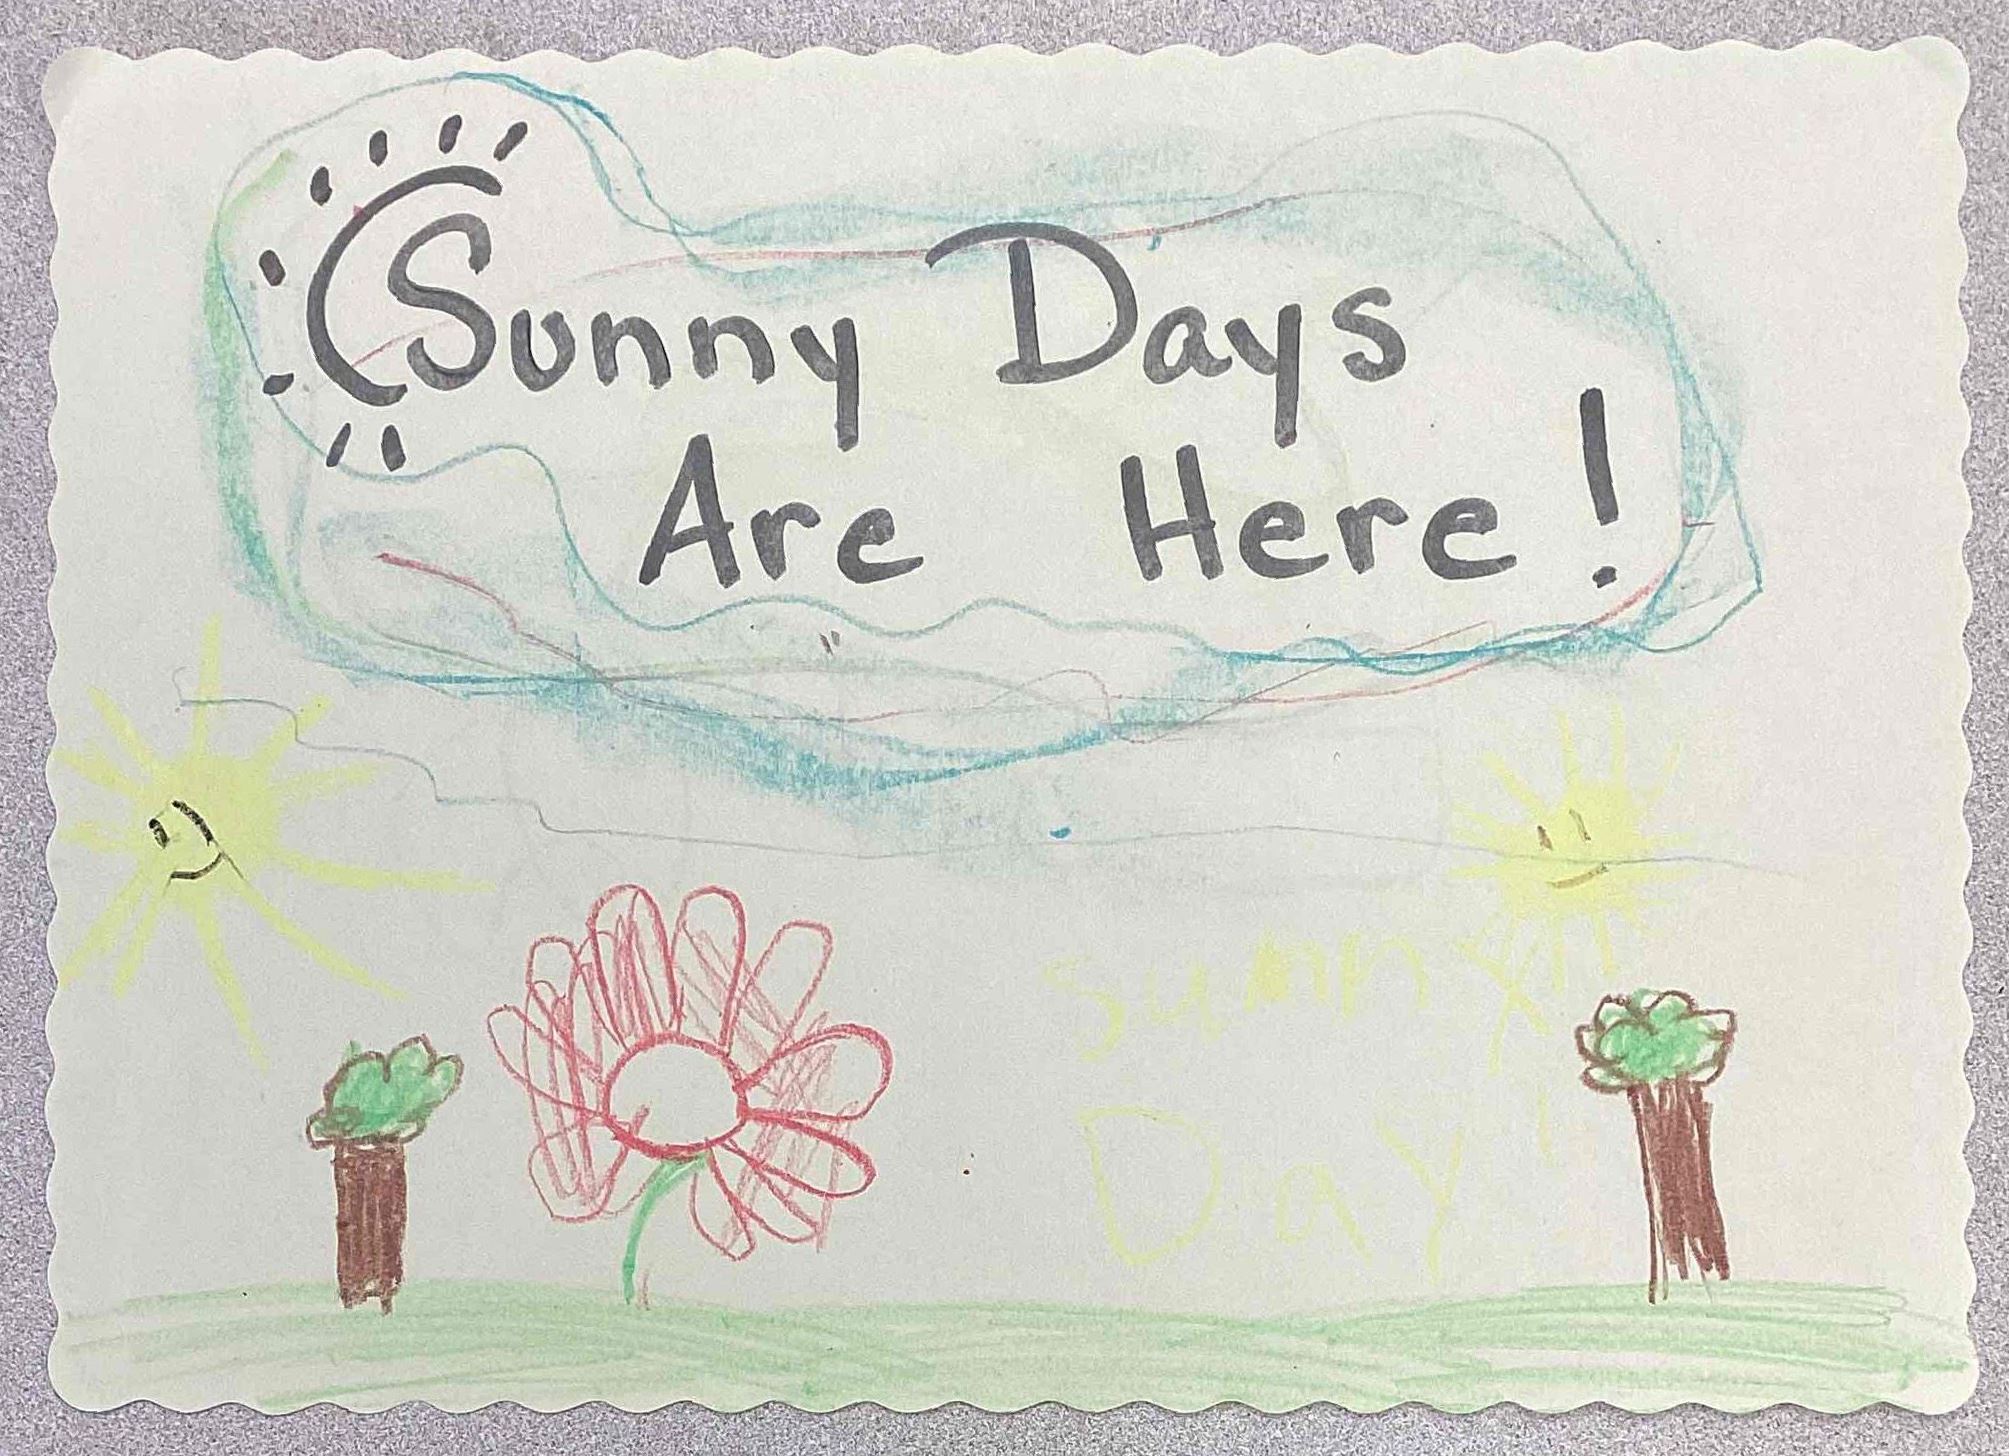 Sunny Days
Are Here!
sunny
Day!